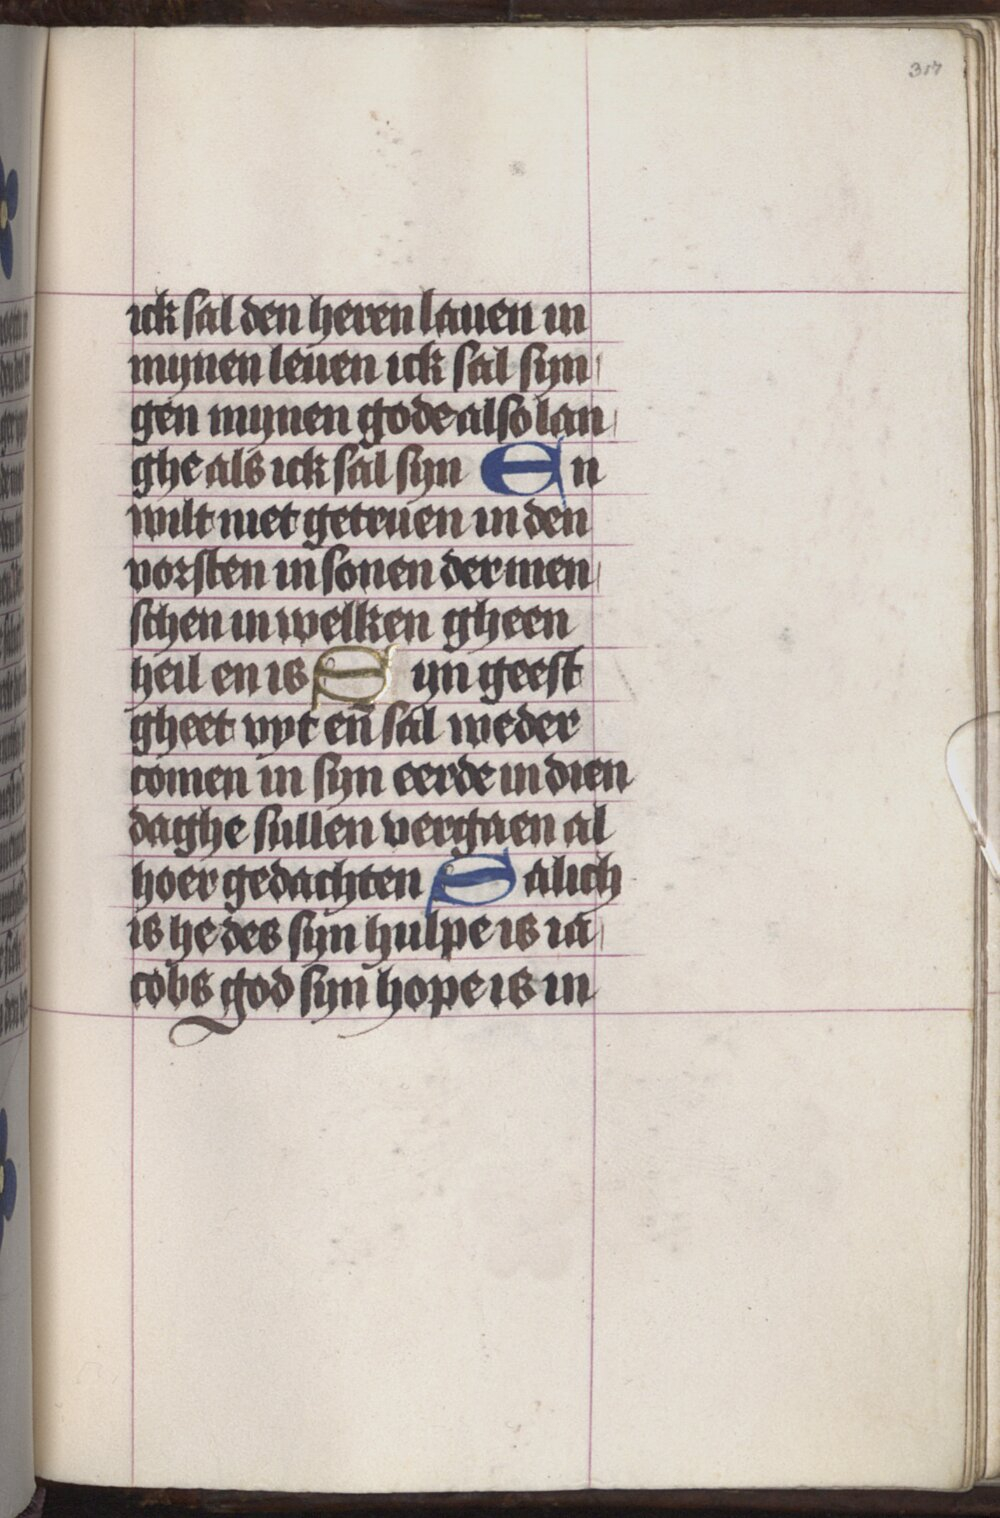 317
ick sal den heren lauen in
mynen leuen ick sal syn
gen mynen gode also lan
ghe als ick sal syn En
wilt niet getruen in den
vorsten in sonen der men
schen in welken gheen
heil en is Syn geest
gheet vyt en̄ sal weder
comen in syn eerde in dien
daghe sullen vergaen al
hoer gedachten Salich
is he des syn hulpe is ia
cobs god syn hope is in